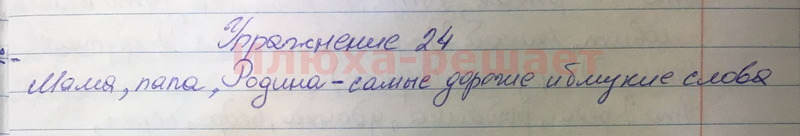 Упражнение 24
Плюха-решает
Мама, папа, Родина - самые дорогие и близкие слова